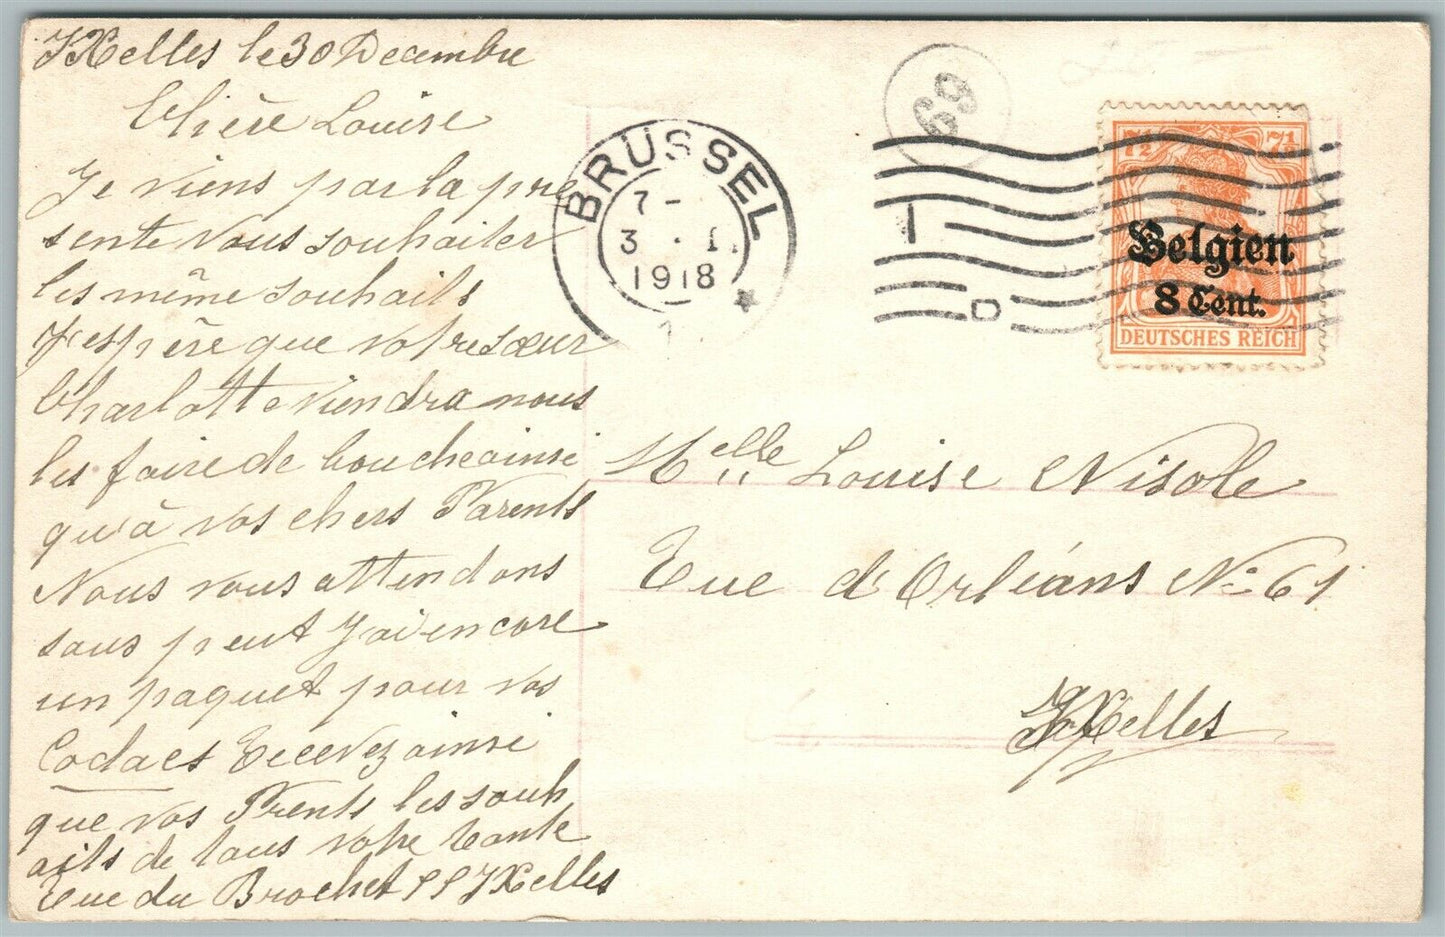 IXelles le 30 Decembre
Chère Louise
Je viens par la pre
sente vous souhaiter
les même souhaits
J'espère que votre sœur
Charlotte viendra nous
les faire de bouche ainsi
qu'à vos chers Parents
Nous vous attendons
sans peut J'ai encore
un paquet pour vos
Codacs Recevez ainsi
que vos Prents les souh
aits de tous votre tante
Rue du Brochet IXelles
BRÜSSEL
7-
3 . 1.
1918
1
*
69
7½ 7½
Belgien
8 Cent.
DEUTSCHES REICH
Melle Louise Nisole
Rue d'Orléans No 61
IXelles